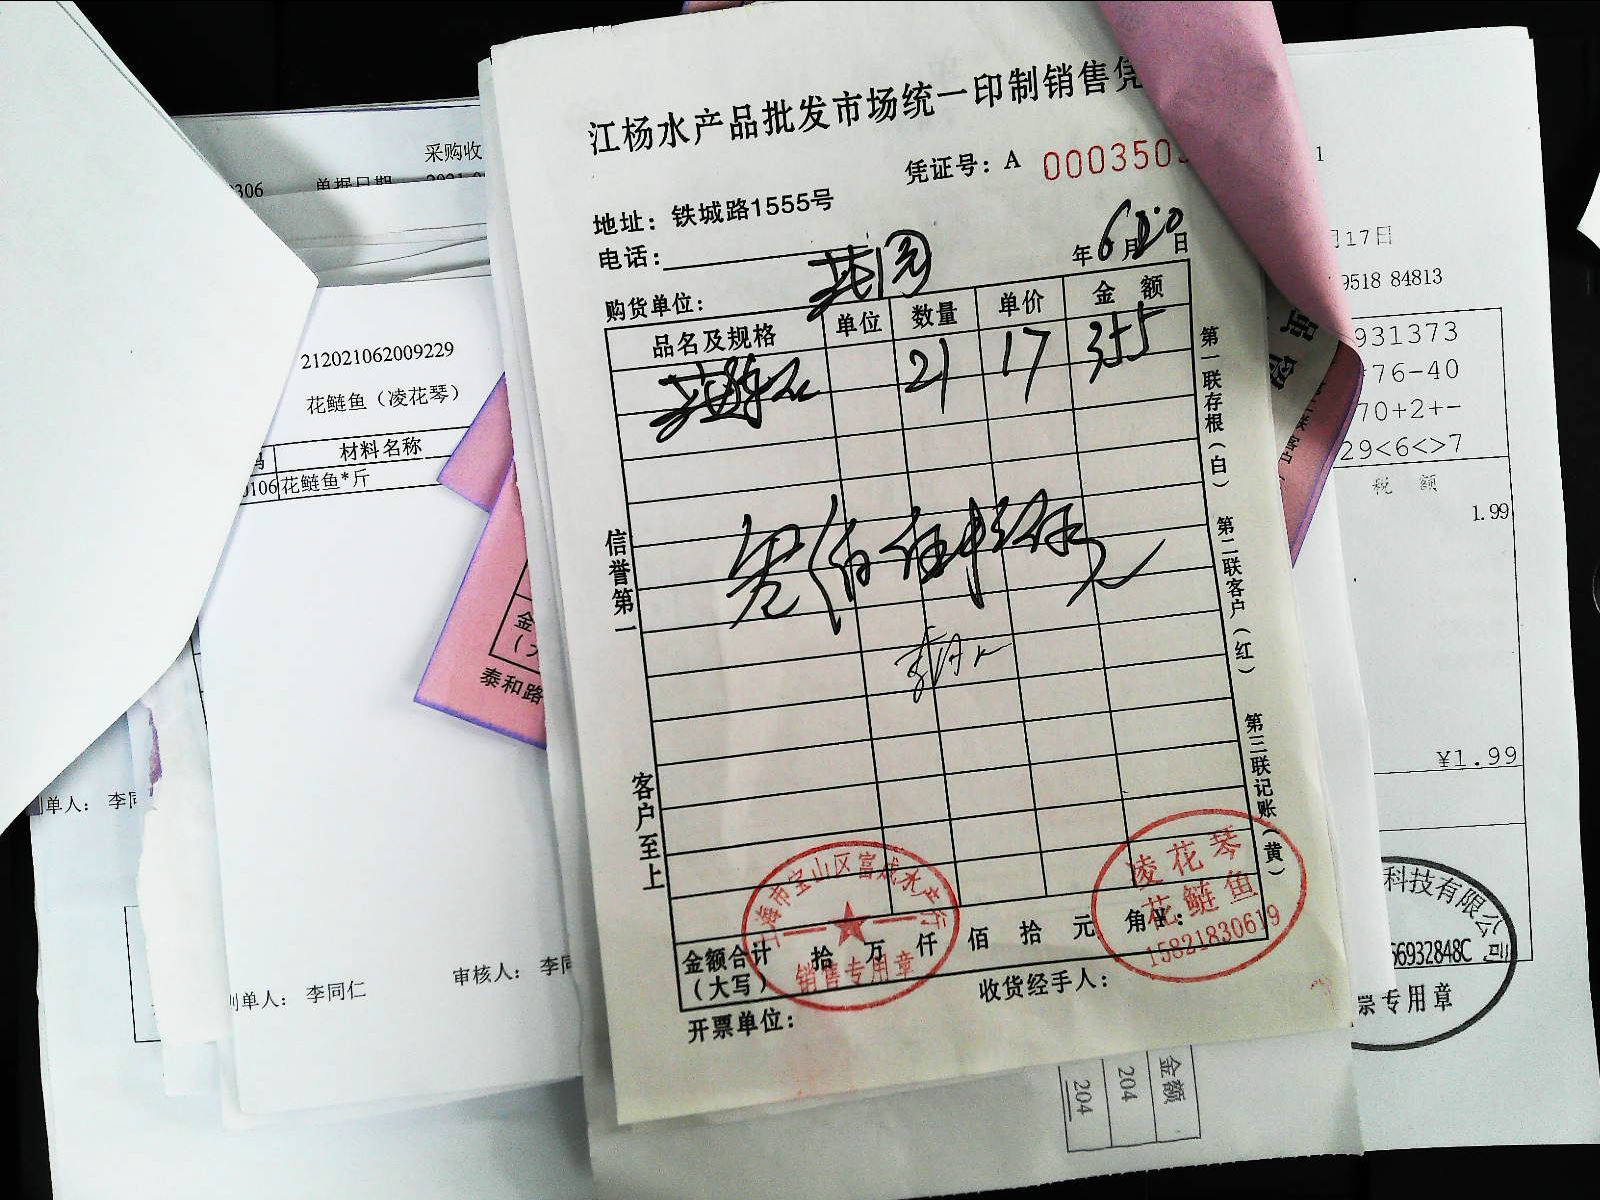 江杨水产品批发市场统一印制销售凭
凭证号：A 0003503
地址：铁城路1555号
电话：
年6月20日
购货单位：
品名及规格 单位 数量 单价 金 额
21 17 355
信誉第一
客户至上
第一联存根（白） 第二联客户（红） 第三联记账（黄）
金额合计（大写） 拾 万 仟 佰 拾 元 角
开票单位：
收货经手人：
上海市宝山区富成水产行
销售专用章
凌花琴
花鲢鱼
15821830619
采购收
0306 单据日期
212021062009229
花鲢鱼（凌花琴）
材料名称
0106 花鲢鱼*斤
金
泰和路
制单人： 李同
制单人： 李同仁
审核人： 李同
1
月17日
9518 84813
931373
*76-40
70+2+-
29<6<>7
税 额
1.99
¥1.99
科技有限公司
66932848C
票专用章
金额
204
204